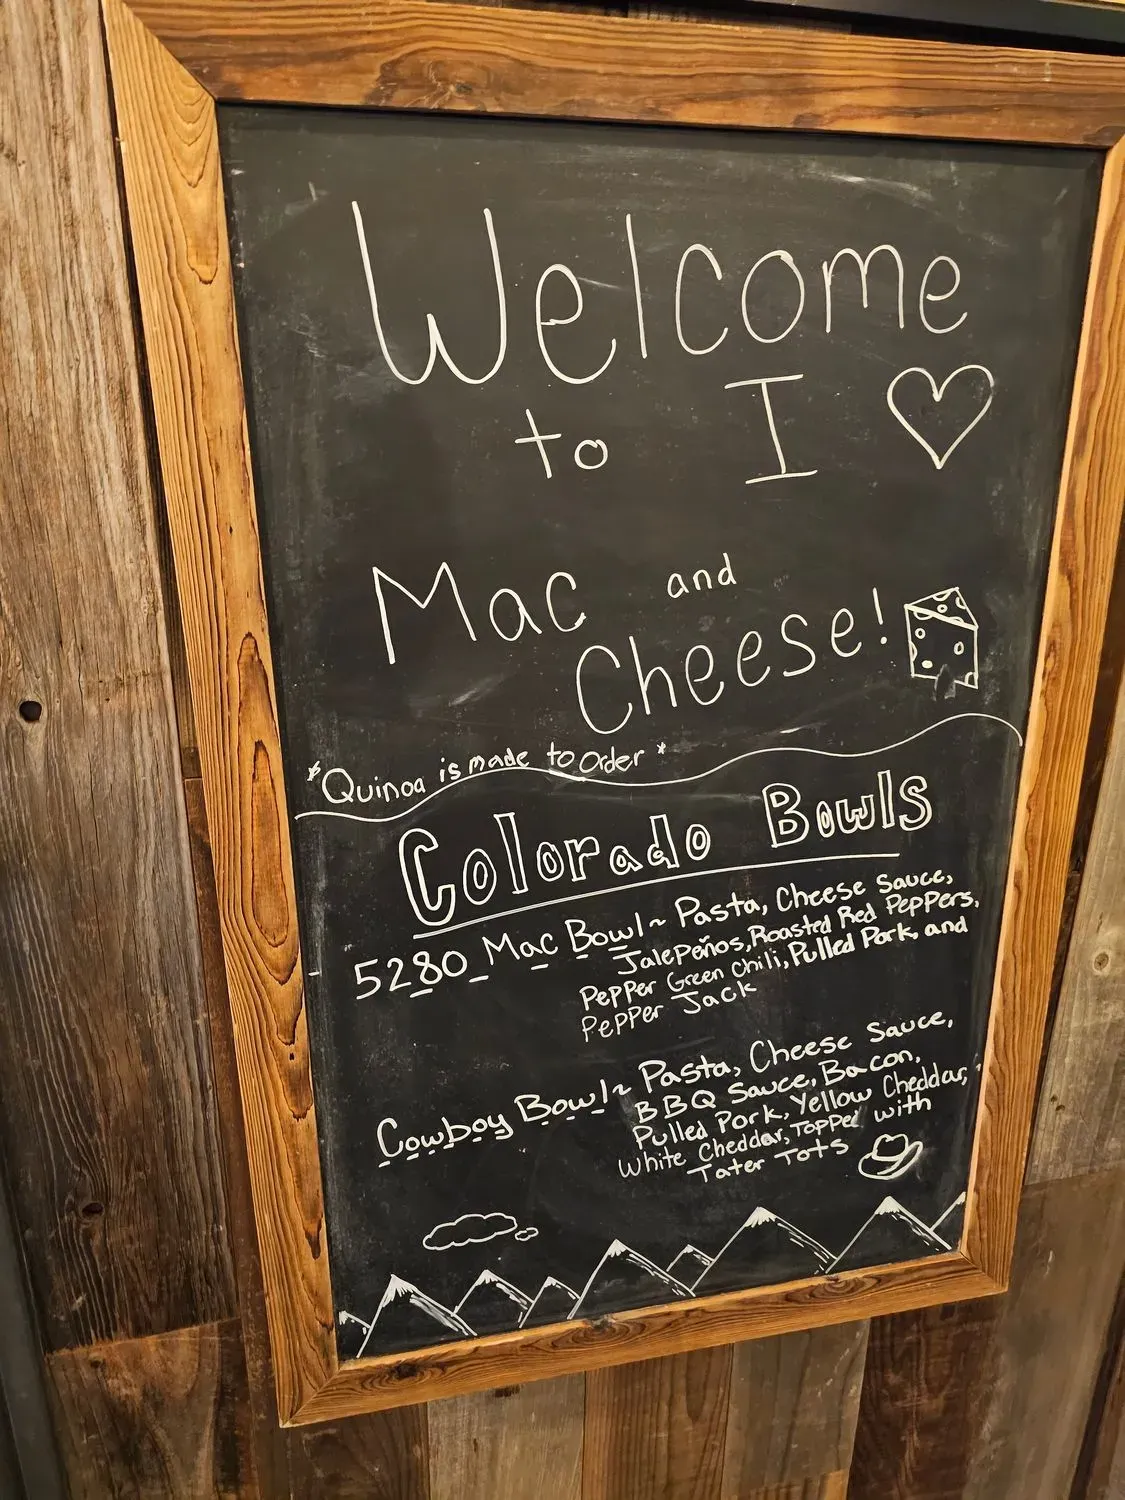 Welcome
to I ♡
Mac and
Cheese!
*Quinoa is made to order*
Colorado Bowls
5280 Mac Bowl~ Pasta, Cheese Sauce,
Jalepeños, Roasted Red Peppers,
Pepper Green Chili, Pulled Pork, and
Pepper Jack
Cowboy Bowl~ Pasta, Cheese Sauce,
BBQ Sauce, Bacon,
Pulled Pork, Yellow Cheddar,
White Cheddar, Topped with
Tater Tots